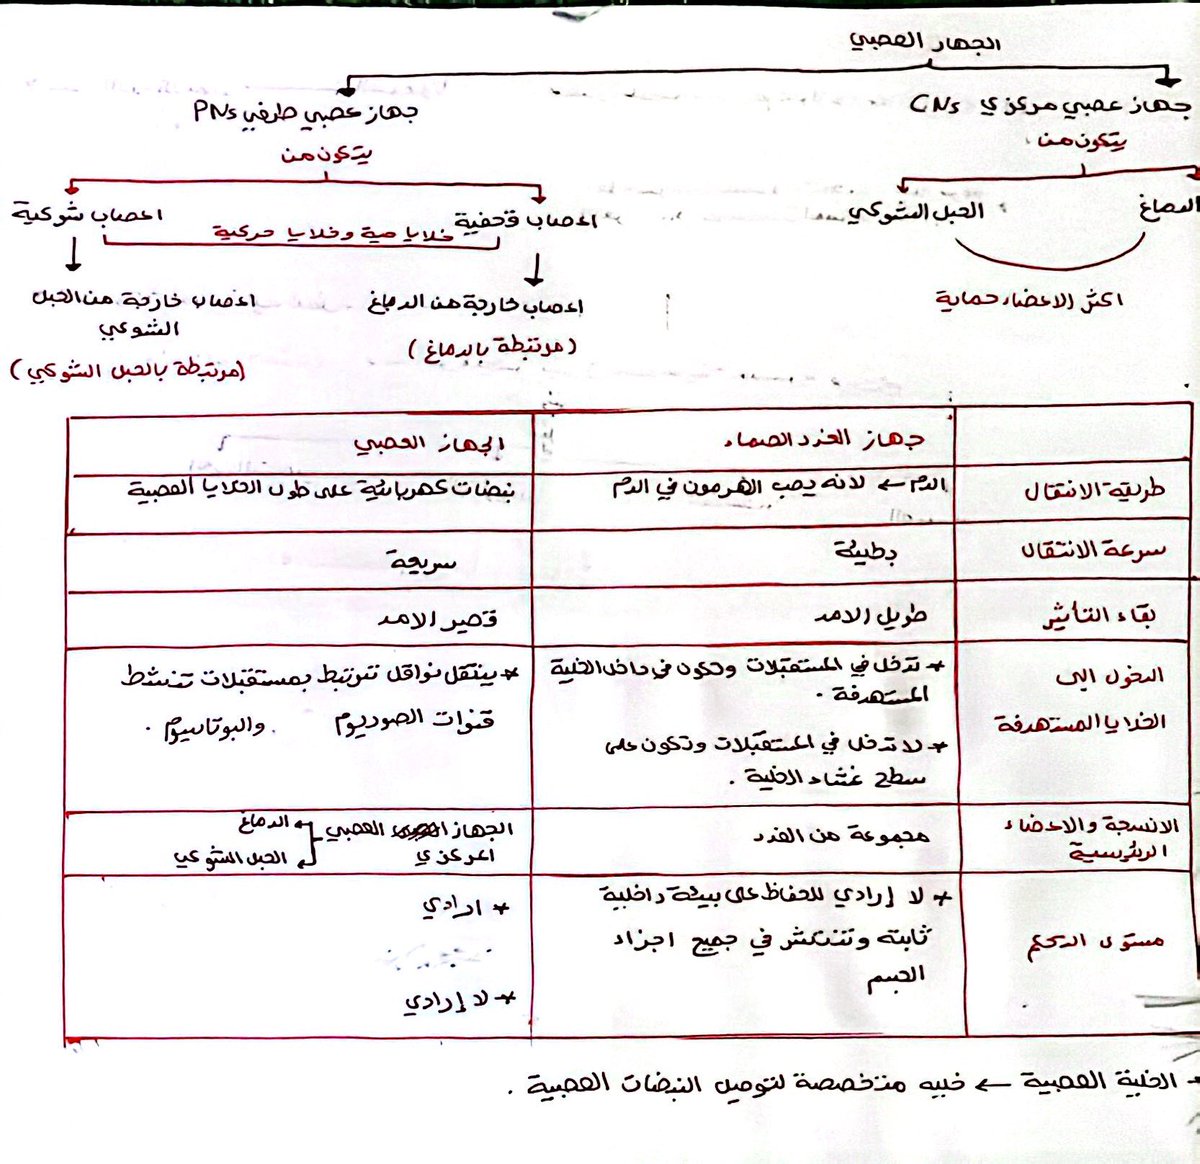 الجهاز العصبي
جهاز عصبي مركزي CNs
يتكون من
الدماغ
الحبل الشوكي
اكثر الاعضاء حماية
جهاز عصبي طرفي PNs
يتكون من
اعصاب قحفية
اعصاب شوكية
خلايا حسية وخلايا حركية
اعصاب خارجة من الدماغ
(مرتبطة بالدماغ)
اعصاب خارجة من الحبل
الشوكي
(مرتبطة بالحبل الشوكي)
جهاز الغدد الصماء
الجهاز العصبي
طريقة الانتقال
الدم ← لانه يصب الهرمون في الدم
نبضات كهربائية على طول الخلايا العصبية
سرعة الانتقال
بطيئة
سريعة
بقاء التأثير
طويل الامد
قصير الامد
الدخول الى
الخلايا المستهدفة
* تدخل في المستقبلات وتكون في داخل الخلية
المستهدفة.
* لا تدخل في المستقبلات وتكون على
سطح غشاء الخلية.
* ينتقل نواقل ترتبط بمستقبلات تنشط
قنوات الصوديوم والبوتاسيوم.
الانسجة والاعضاء
الرئيسية
مجموعة من الغدد
الجهاز العصبي
المركزي
الدماغ
الحبل الشوكي
مستوى التحكم
* لا إرادي للحفاظ على بيئة داخلية
ثابتة وتنتشر في جميع اجزاء
الجسم
* ارادي
* لا إرادي
* الخلية العصبية ← خليه متخصصة لتوصيل النبضات العصبية.